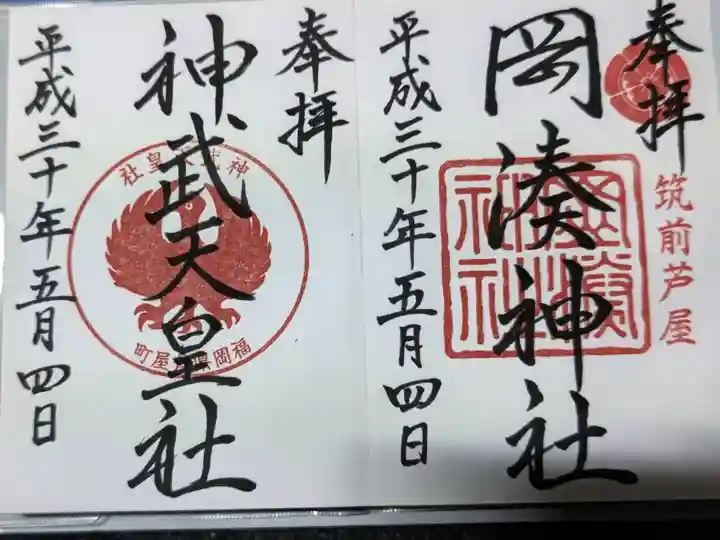 奉拝
筑前芦屋
岡湊神社
岡湊神社
平成三十年五月四日
奉拝
神武天皇社
神武天皇社
福岡県芦屋町
平成三十年五月四日